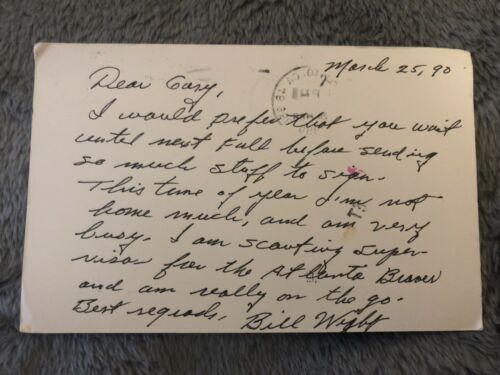 March 25, 90
Dear Gary,
I would prefer that you wait
until next Fall before sending
so much stuff to sign.
This time of year I'm not
home much, and am very
busy. I am scouting super-
visor for the Atlanta Braves
and am really on the go.
Best regards, Bill Wight